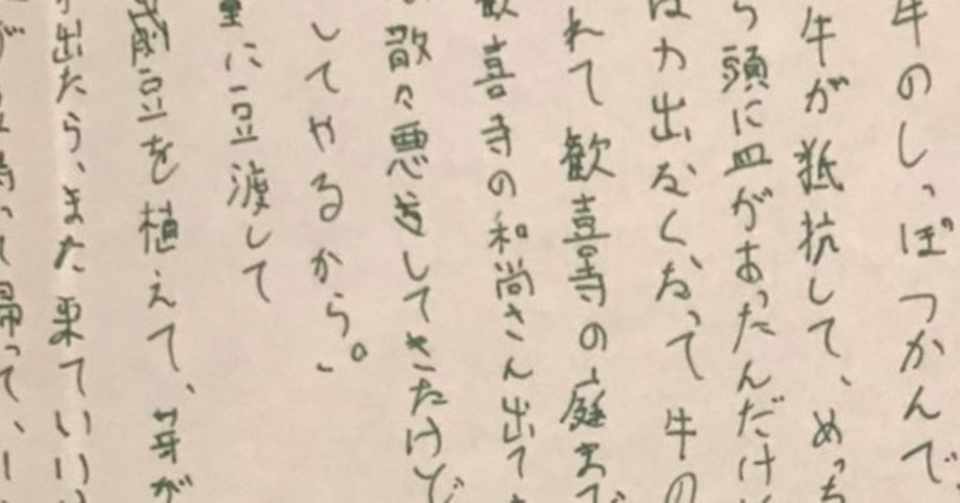 牛のしっぽつかんで、
牛が抵抗して、めっち
ら頭に皿があったんだけ
は力出なくなって牛の
れて歓喜寺の庭まで
歓喜寺の和尚さん出て
散々悪さしてきたけど
してやるから。」
に豆渡して
豆を植えて、芽が
出たら、また来ていい
帰って、